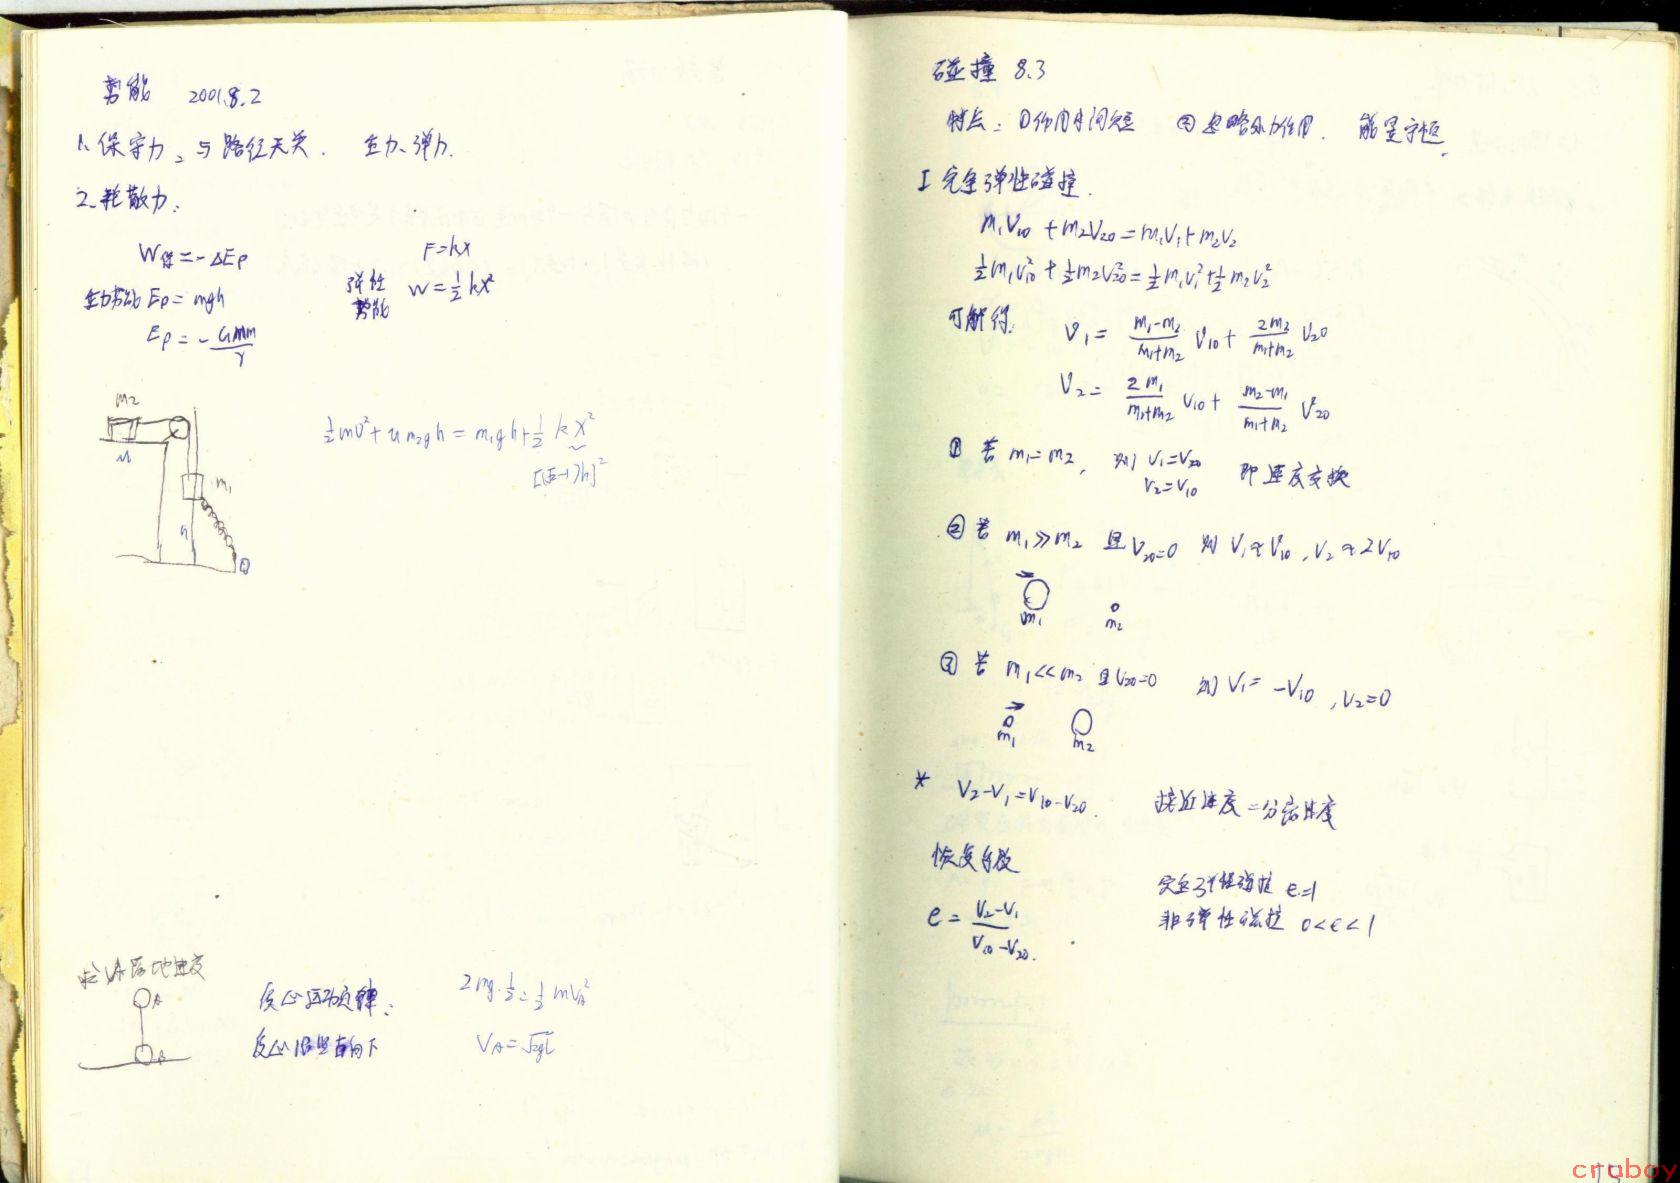 势能 2001.8.2
1、保守力: 与路径无关. 重力、弹力.
2、耗散力:
W保=-ΔEp
F=kx
重力势能 Ep=mgh
弹性势能 W=½kx²
Ep=-GMm/r
m2
½mv²+um2gh=m1gh+½kx²
[(√2-1)h]²
u
m1
h
求VA落地速度
A
质心运动定律:
2mg·½=½mVA²
B
质心沿竖直向下
VA=√2gL
碰撞 8.3
特点: ①作用时间短 ②忽略外力作用. 能量守恒.
I 完全弹性碰撞.
m1V10+m2V20=m1V1+m2V2
½m1V10²+½m2V20²=½m1V1²+½m2V2²
可解得:
V1=(m1-m2)/(m1+m2) V10+2m2/(m1+m2) V20
V2=2m1/(m1+m2) V10+(m2-m1)/(m1+m2) V20
① 若 m1=m2, 则 V1=V20
V2=V10 即速度交换
② 若 m1≫m2 且V20=0 则 V1≈V10, V2≈2V10
m1 m2
③ 若 m1<<m2 且V20=0 则 V1=-V10, V2=0
m1 m2
* V2-V1=V10-V20. 接近速度=分离速度
恢复系数
完全弹性碰撞 e=1
e=(V2-V1)/(V10-V20).
非弹性碰撞 0<e<1
cruboy